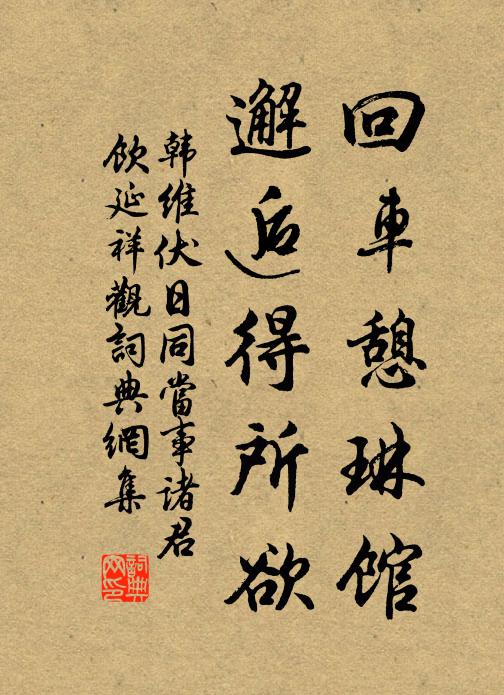 回車憩琳館
邂逅得所欲
韩維伏日同當事諸君
飲延祥觀詞典網集
詞典网印